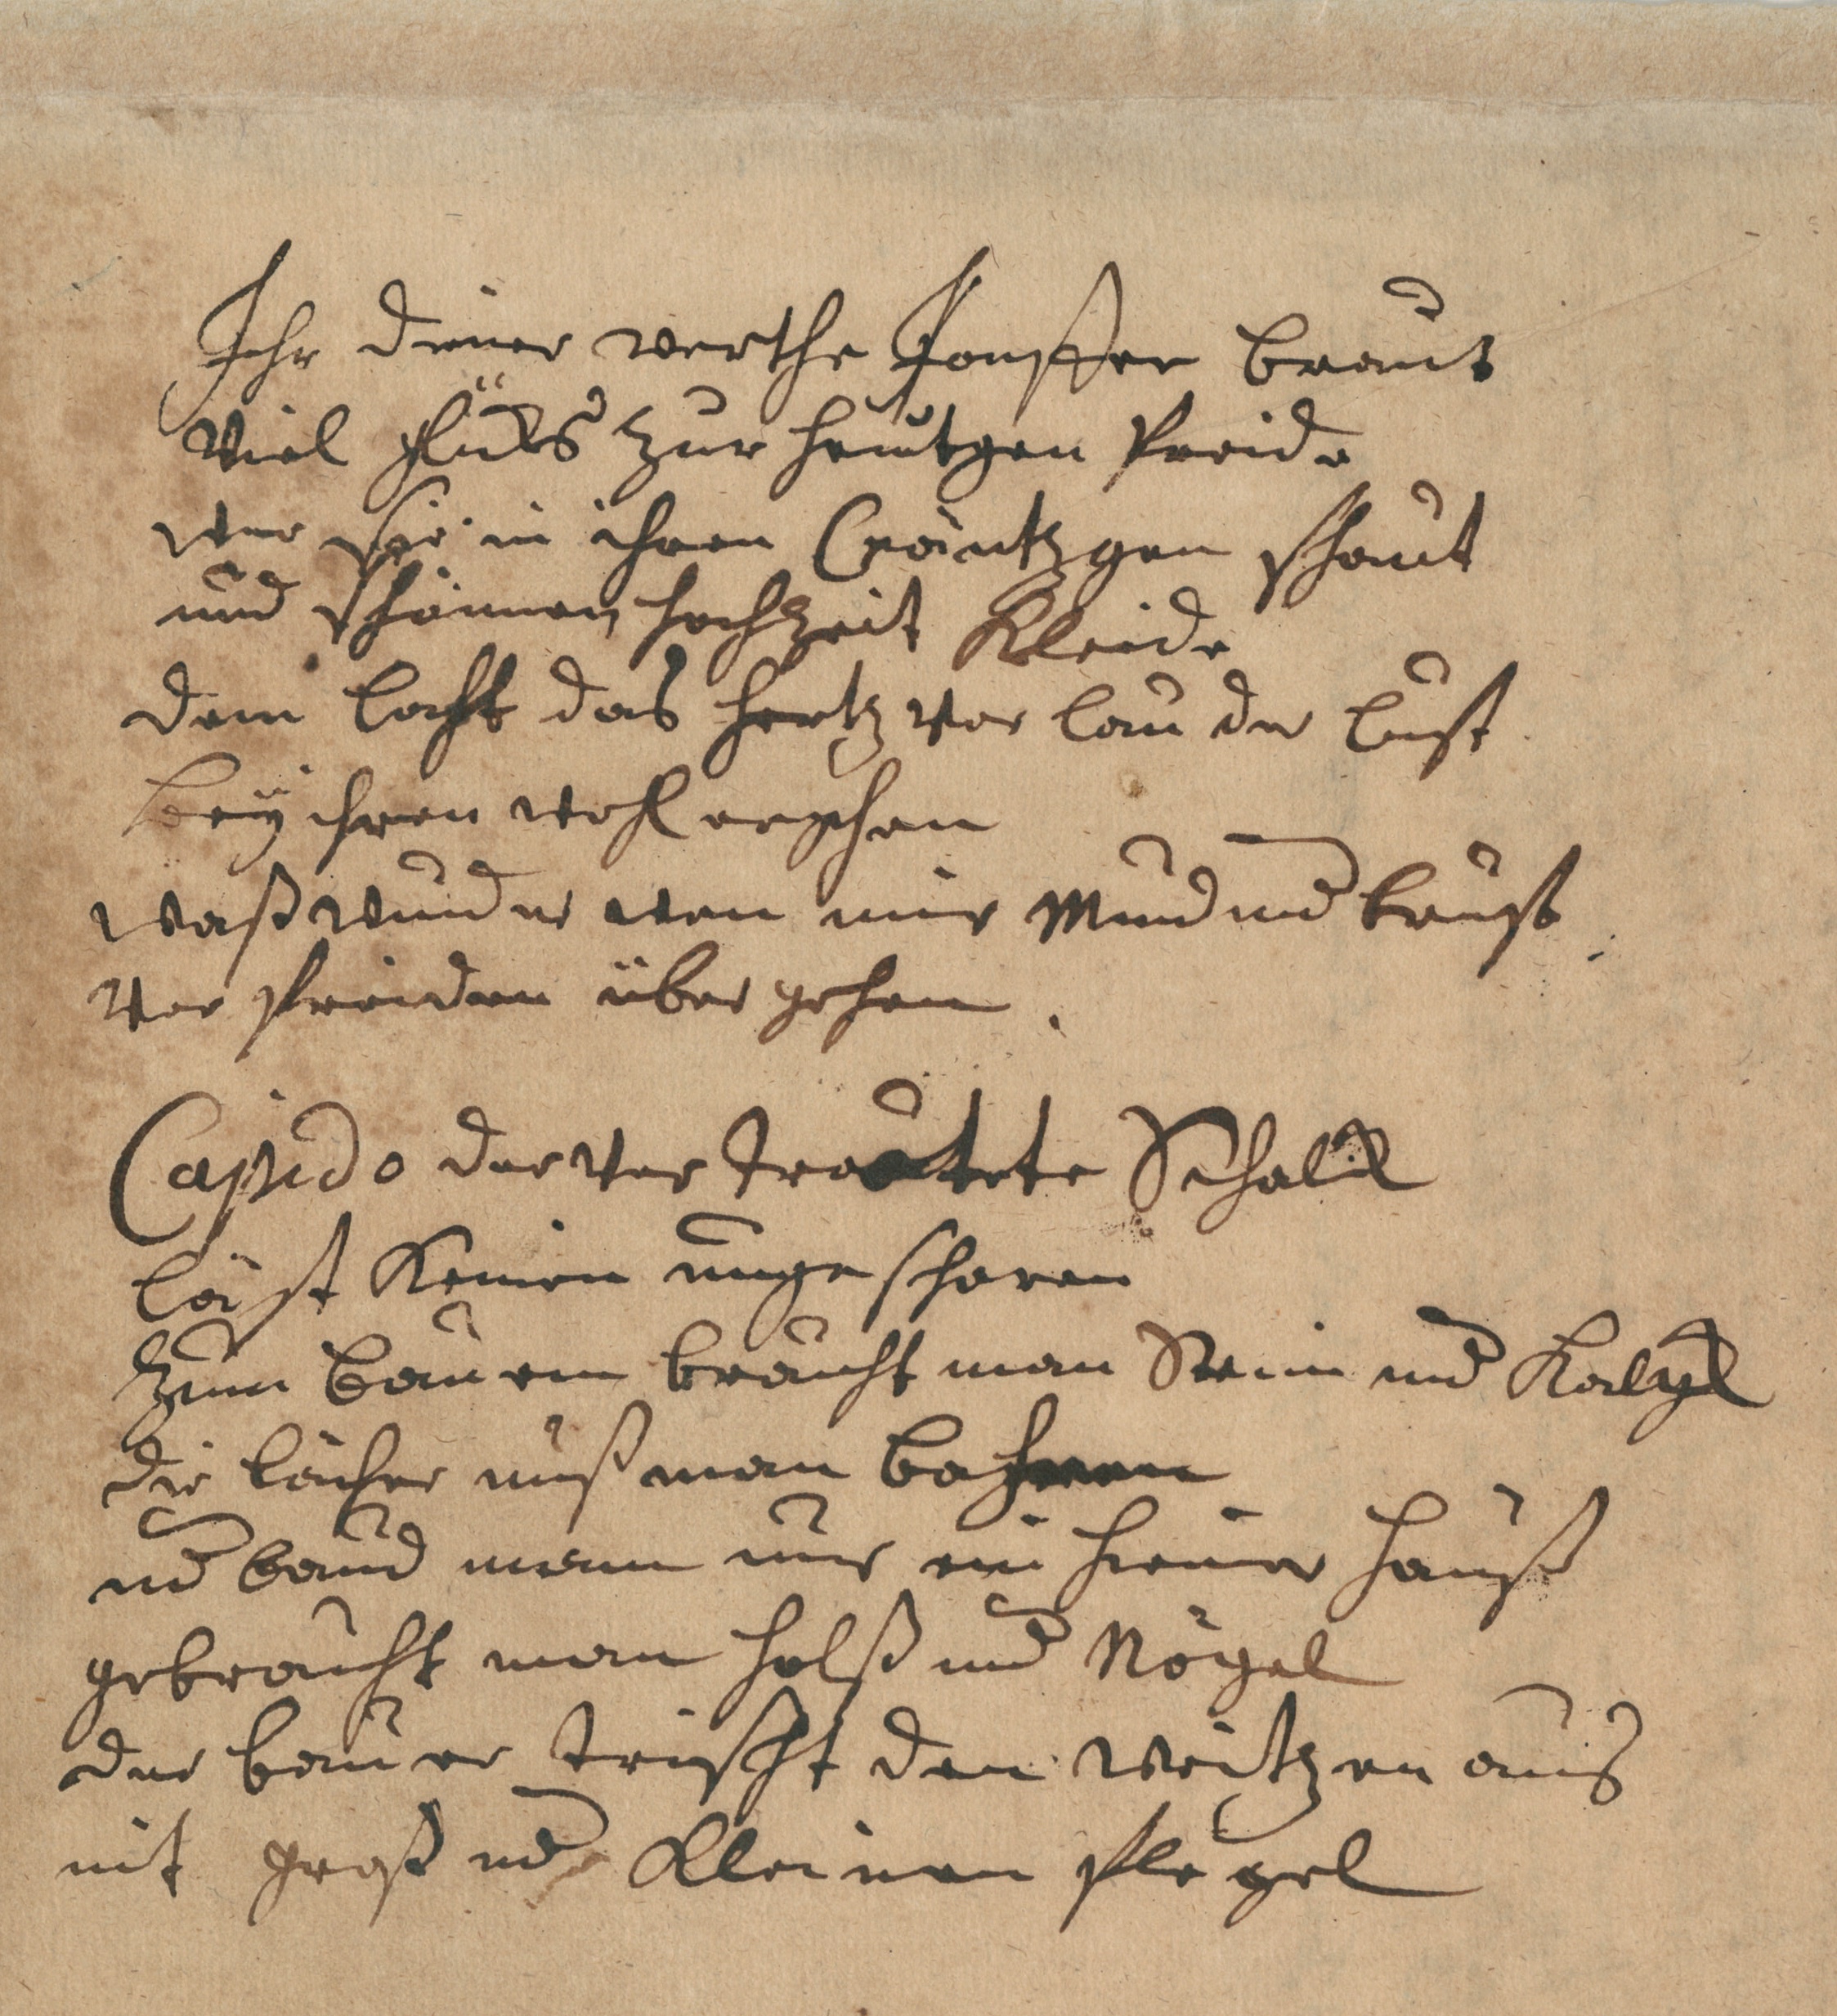 Ihr diener werthe Jonffer braut
Viel glücks zur heutgen freide
wer sie in ihren Cräntzgen schaut
und schönnen hochzeit Kleide
dem lacht das hertz vor lauder lust
bey ihren wohlergehen
waß wunder wen mir Mund und brust
vor freiden über gehen.
Cupido der ver trautete Schalck
läst Keinen ungeschoren
zum bauen braucht man Stein und Kalgk
die löcher muß man bohren
und baud mann nur ein hiener hauß
gebraucht man holß und Nögel
der bauer trischt den weitzen aus
mit groß und Kleinen flegel